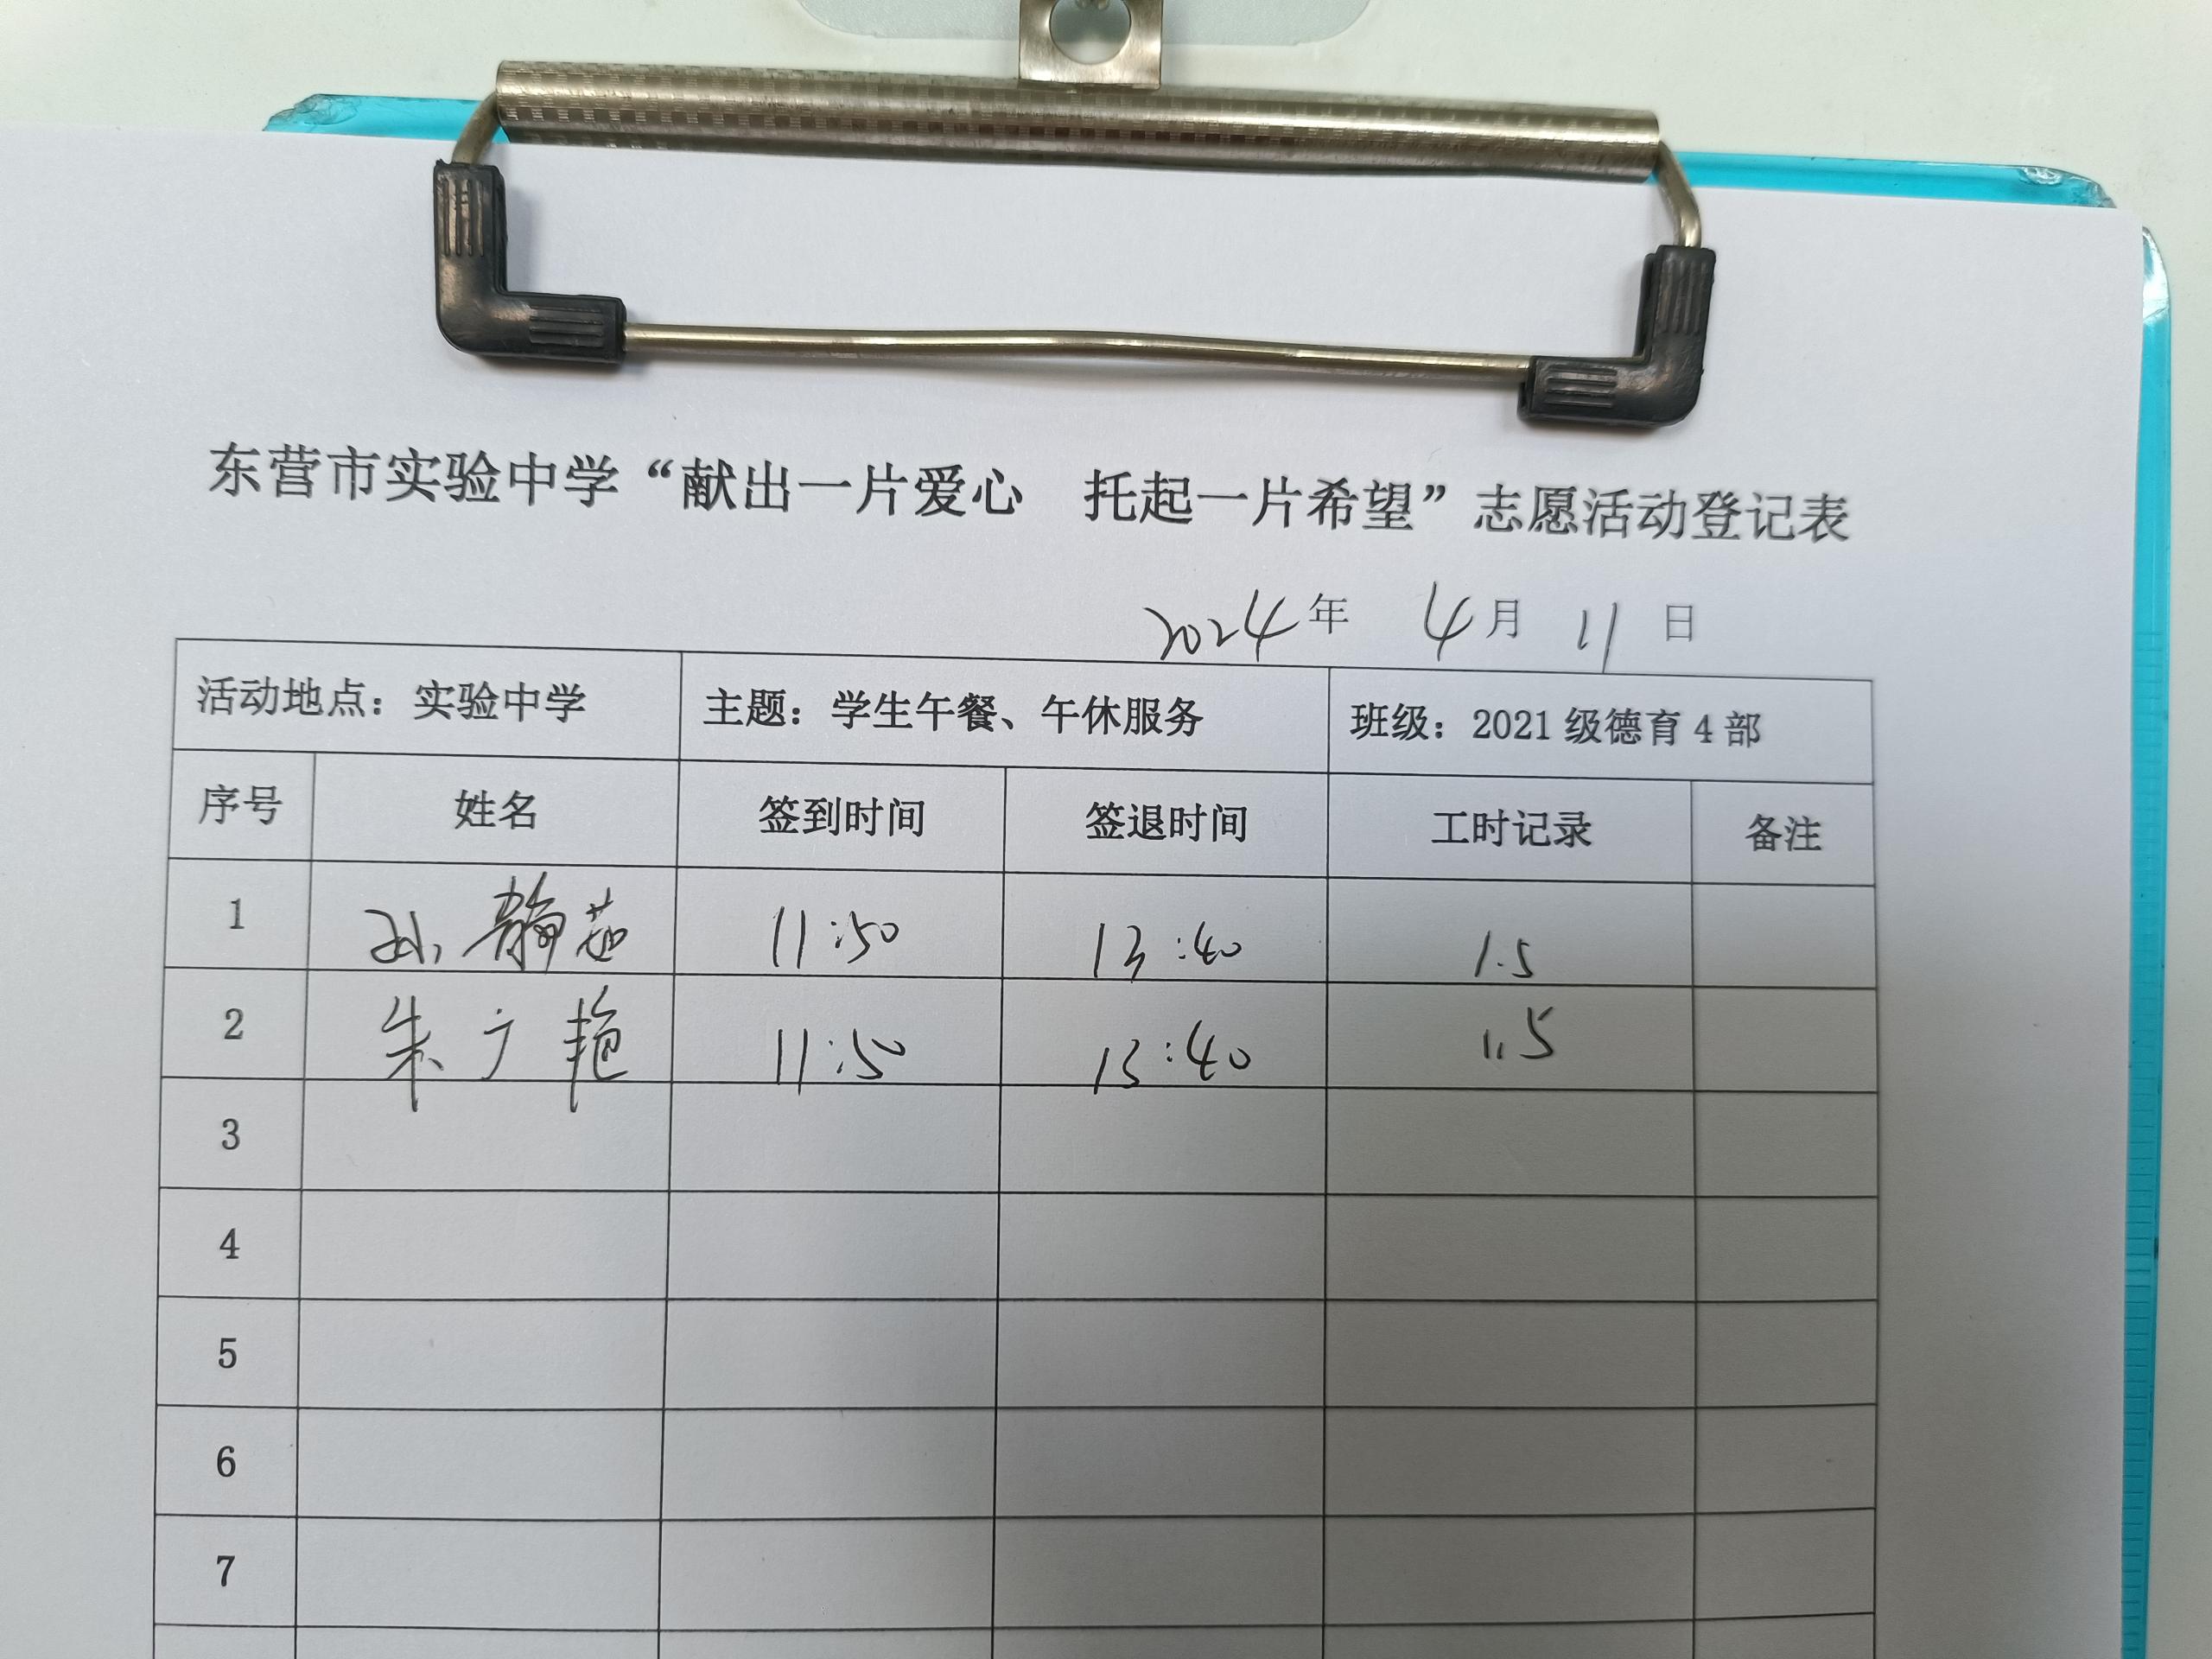 东营市实验中学“献出一片爱心 托起一片希望”志愿活动登记表
2024年 4月 11日
活动地点：实验中学 主题：学生午餐、午休服务 班级：2021级德育4部
序号 姓名 签到时间 签退时间 工时记录 备注
1 孙静茹 11:50 13:40 1.5
2 朱广艳 11:50 13:40 1.5
3
4
5
6
7